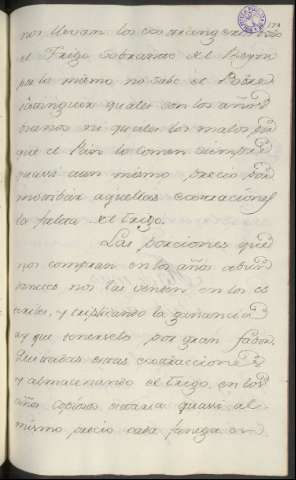 nos llevan los extrangeros
el Trigo sobrante del Reyno
por lo mismo no sabe el Pobre
distinguir quales son los años
buenos ni quales los malos, por
que el Pan lo comen siempre
quasi a un mismo precio por
motibar aquellas extracciones
la falta del trigo.
Las porciones que
nos compran en los años abun
dantes nos las venden en los es
teriles, y triplicando la ganancia
ay que tenerselo por gran fabor.
Quitadas estas extracciones
y almacenando el trigo, en los
años copiosos estaria quasi al
mismo precio cada fanega en